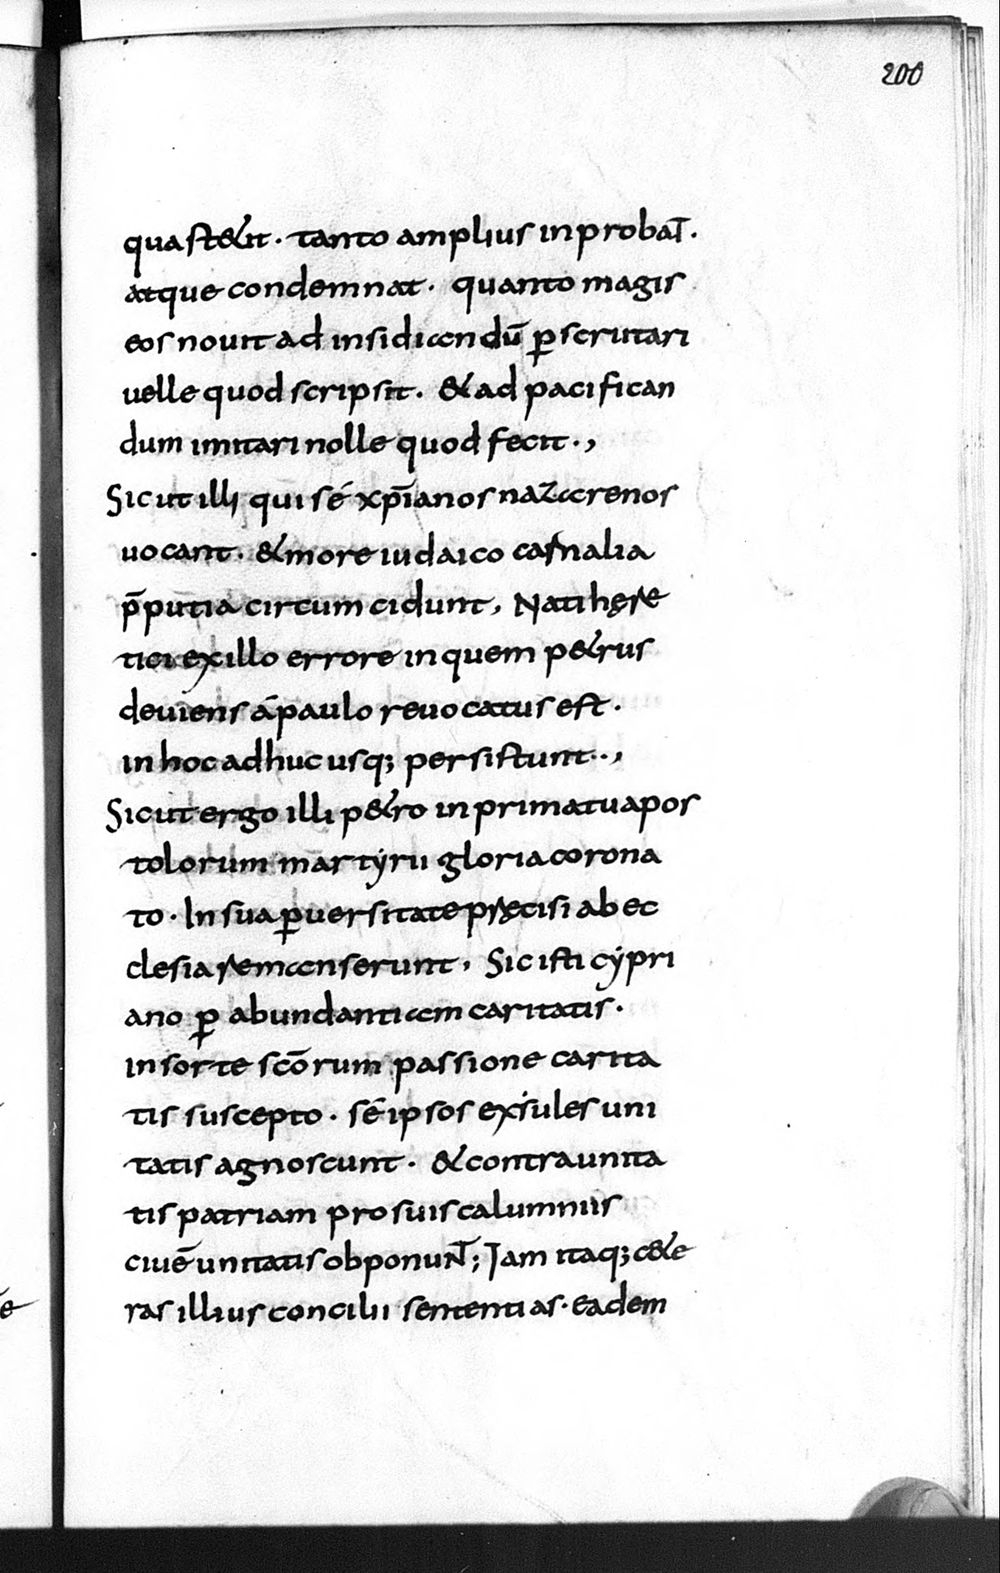 200
qua stetit · tanto amplius inprobat̄ ·
atque condemnat · quanto magis
eos nouit ad insidiandū p̱scrutari
uelle quod scripsit · & ad pacifican
dum imitari nolle quod fecit ·,
Sicut illi qui sé xp̄ianos nazarenos
uocant · & more iudaico carnalia
p̄putia circumcidunt, Nati hęre
tici ex illo errore in quem p&rus
deuiens á paulo reuocatus est ·
in hoc adhuc usq; persistunt··,
Sicut ergo illi p&ro in primatu apos
tolorum martyrii gloria corona
to · In sua p̱uersitate pręcisi ab ec
clesia remanserunt, Sic isti cypri
ano p̱ abundantiam caritatis ·
in sorte sc̄orum passione carita
tis suscepto · sé ipsos exsules uni
tatis agnoscunt · & contra unita
tis patriam pro suis calumniis
ciuē unitatis obponunt̄; Iam itaq; c&e
ras illius concilii sententias · eadem